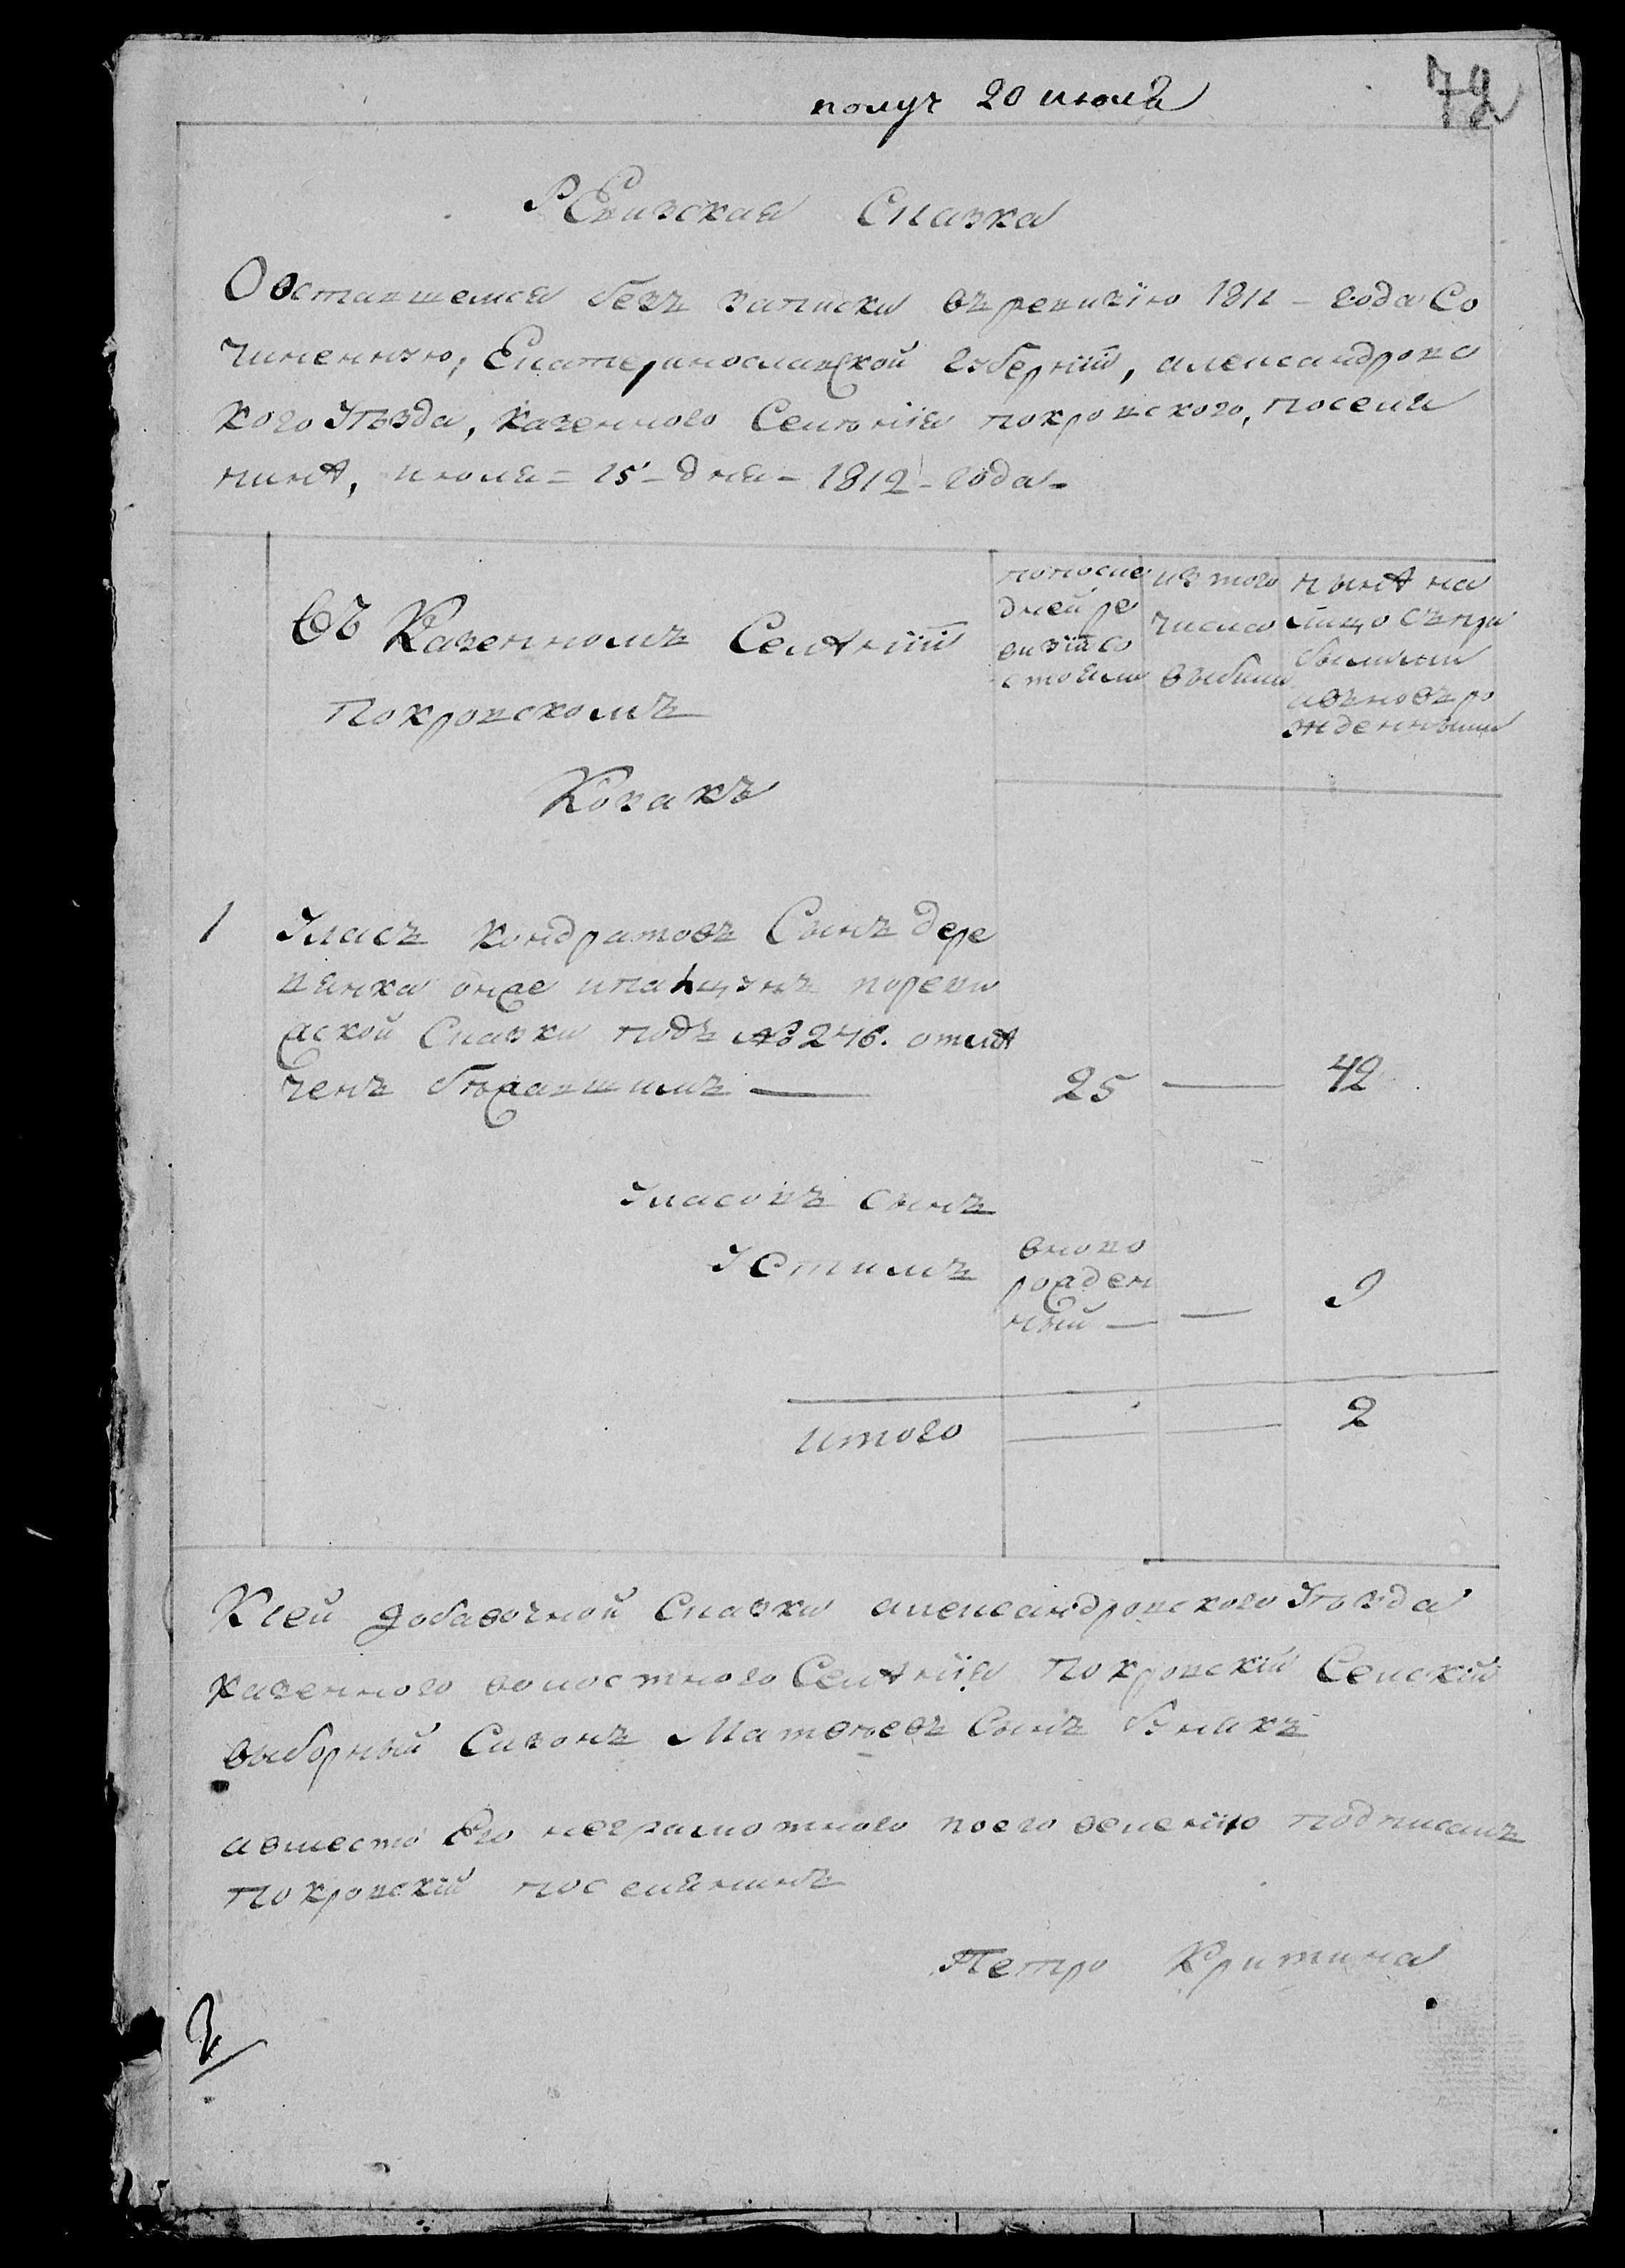 получ 20 июля
72
РЕвизская Сказка
О оставшемся безъ записки въ ревизїю 1811 – года Со
чиненную, Екатеринославской губернїи, александровс
кого Уѣзда, казенного Селѣнїя покровского, поселя
нинѣ, июля = 15 – дня – 1812 – года –
Въ Казенномъ Селѣнїи
Покровскомъ
Козакъ
попосле
дней ре
визїи со
стояло
из того
числа
выбыло
нынѣ на
лицо съ при
былыми
ивновь ро
жденными
1
Уласъ кондратовъ Сынъ дере
вянка онже
ской Сказки подъ №246. отмѣ
ченъ бѣжавшимъ —
25 — 42
Уласовъ сынъ
Устимъ
вново
рожден
ный — — 9
итого — — 2
Ксей добавочной Сказки александровского Уѣзда
казенного волостного Селѣнїя Покровскїй Селскїй
выборный Сазонъ Матвѣевъ Сынъ бʼнакъ
авместо Его неграмотного поего веленїю подписалъ
Покровскїй поселянинъ
Петро Критина